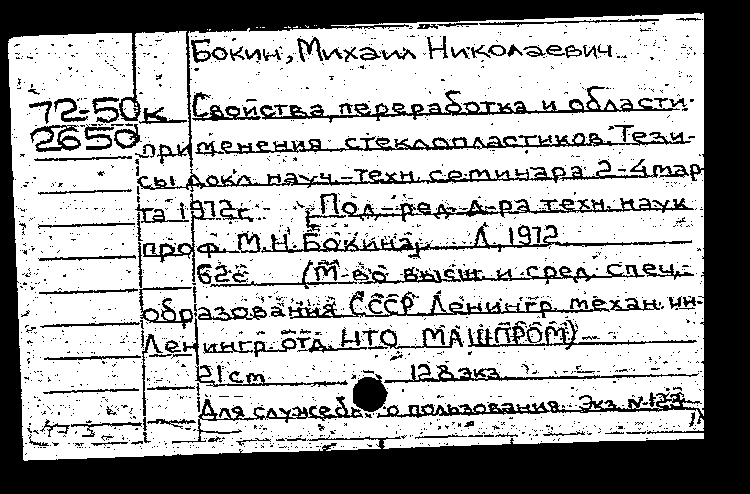 Бокин, Михаил Николаевич
72-50к Свойства, переработка и области
2650 применения стеклопластиков. Тези-
сы докл. науч.-техн. семинара 2-4 мар-
та 1972г. [Под. ред. д-ра техн. наук
проф. М.Н. Бокина]. Л., 1972
62с. (М-во высш. и сред. спец.
образования СССР Ленингр. механ. ин-
Ленингр. отд. НТО МАШПРОМ)
21см 128 экз.
Для служебного пользования. Экз. №